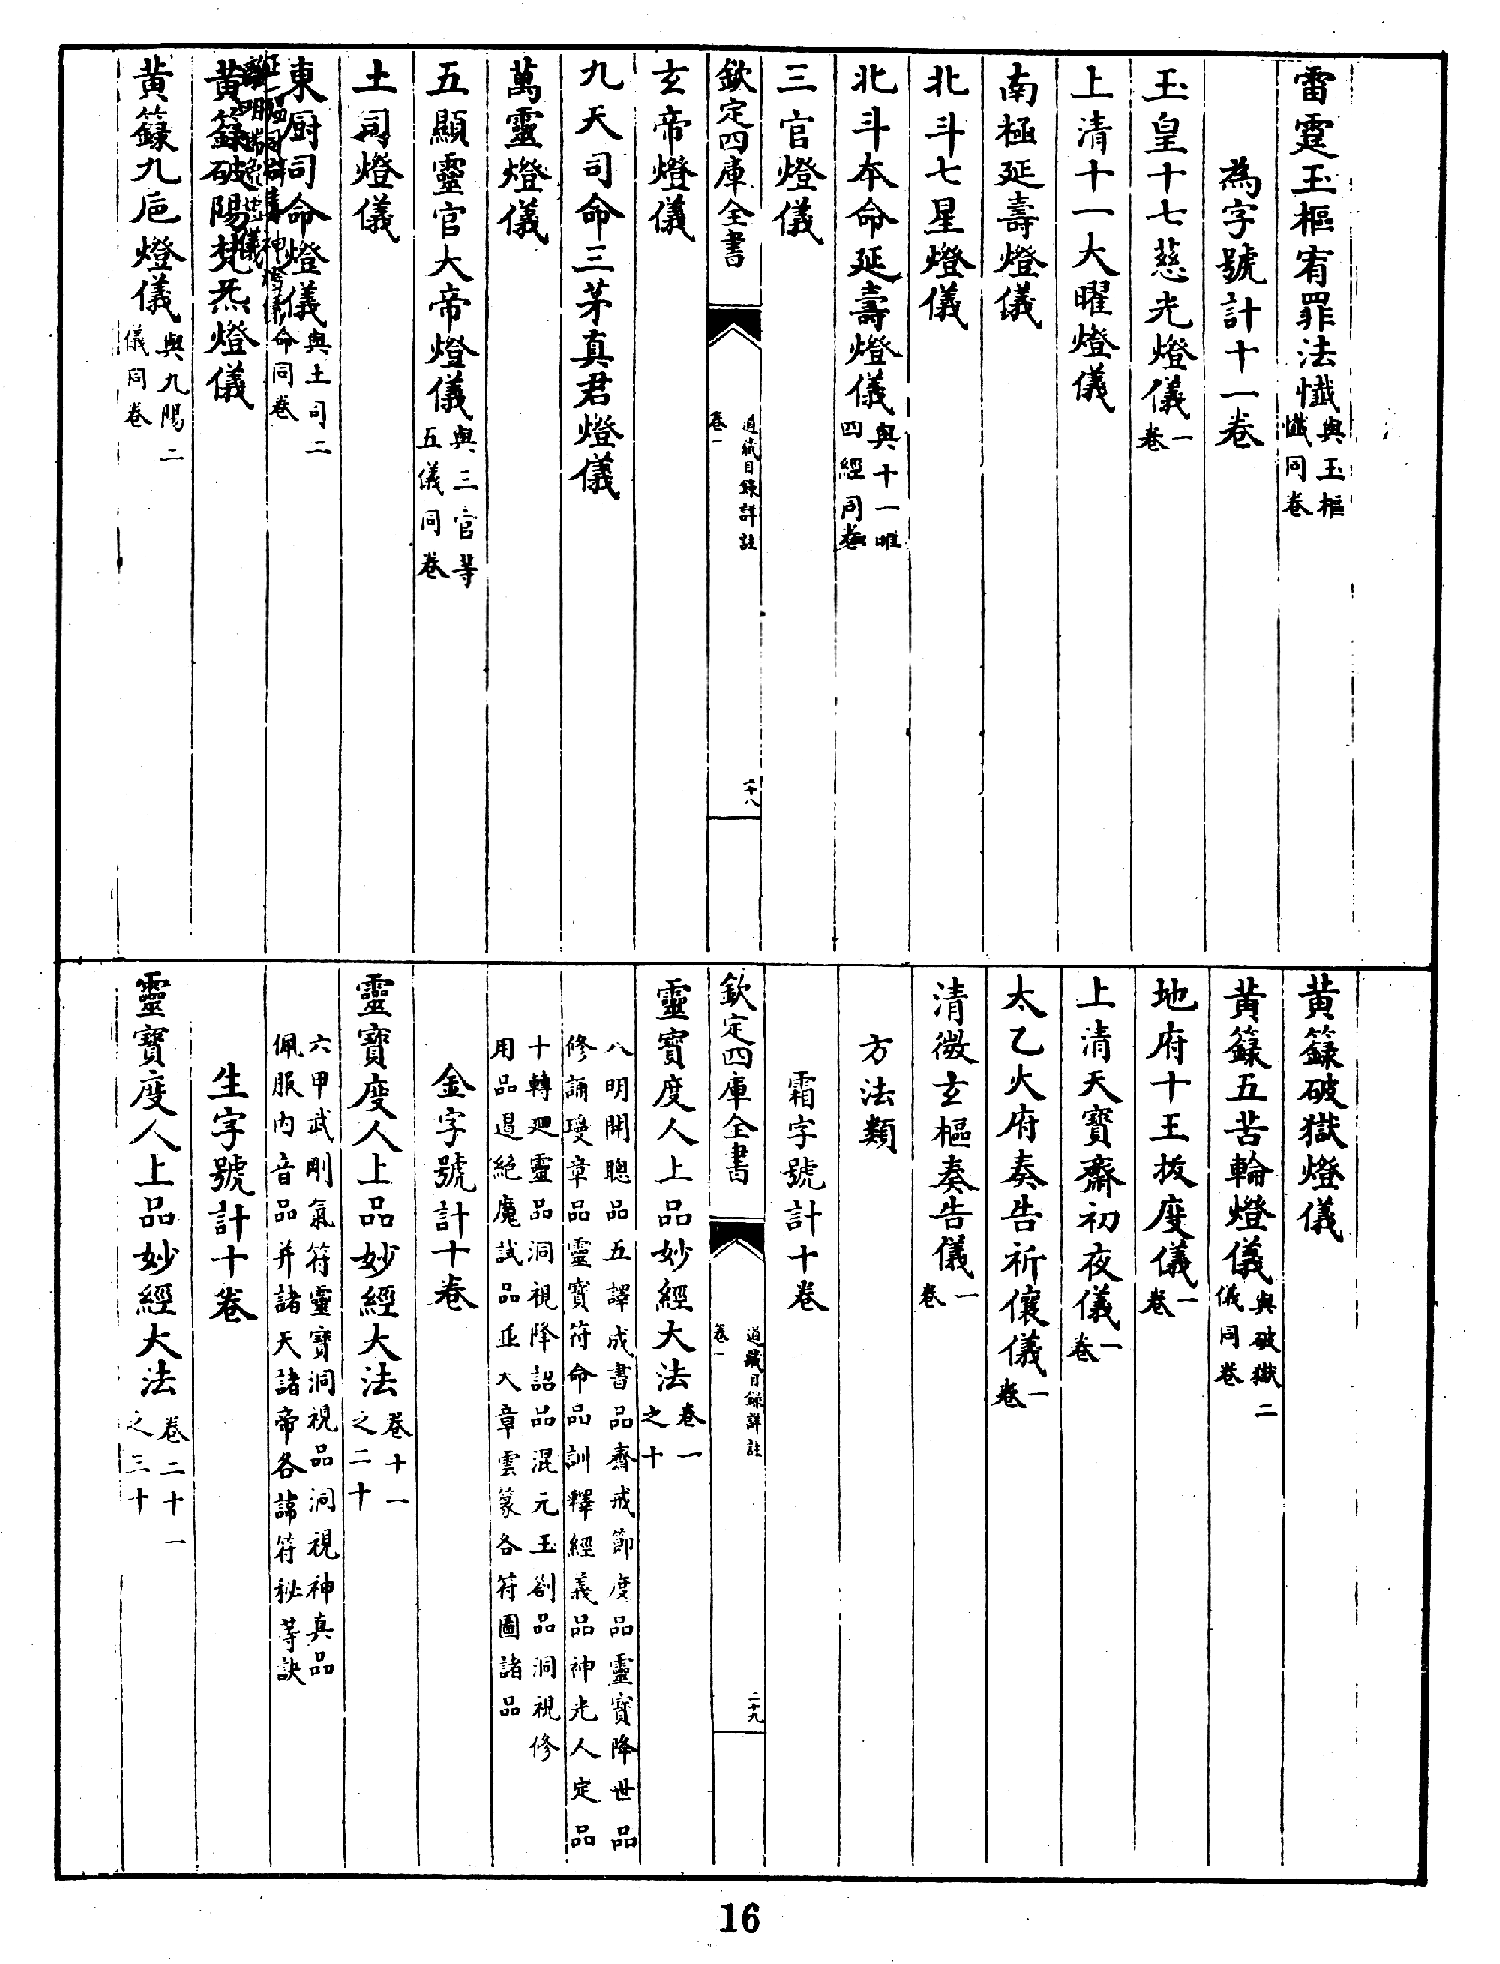 雷霆玉樞宥罪法懺與玉樞懺同卷
為字號計十一卷
玉皇十七慈光燈儀一卷
上清十一大曜燈儀
南極延壽燈儀
北斗七星燈儀
北斗本命延壽燈儀與十一曜四經同卷
三官燈儀
欽定四庫全書
道藏目錄詳註
卷一
二十八
玄帝燈儀
九天司命三茅真君燈儀
萬靈燈儀
五顯靈官大帝燈儀與三官等五儀同卷
土司燈儀
東厨司命燈儀與土司二命同卷
黃籙破陽梵炁燈儀
黃籙九巵燈儀與九陽二儀同卷
黃籙破獄燈儀
黃籙五苦輪燈儀與破獄二儀同卷
地府十王拔度儀一卷
上清天寶齋初夜儀一卷
太乙火府奏告祈儴儀一卷
清微玄樞奏告儀一卷
方法類
霜字號計十卷
欽定四庫全書
道藏目錄詳註
卷一
二十九
靈寶度人上品妙經大法卷一之十
八明開聰品五譯成書品齋戒節度品靈寶降世品
修誦瓊章品靈寶符命品訓釋經義品神光人定品
十轉廻靈品洞視降詔品混元玉劄品洞視修
用品遏絕魔試品並大章雲篆各符圖諸品
金字號計十卷
靈寶度人上品妙經大法卷十一之二十
六甲武剛氣符靈寶洞視品洞視神真品
佩服內音品并諸天諸帝各諱符祕等訣
生字號計十卷
靈寶度人上品妙經大法卷二十一之三十
16